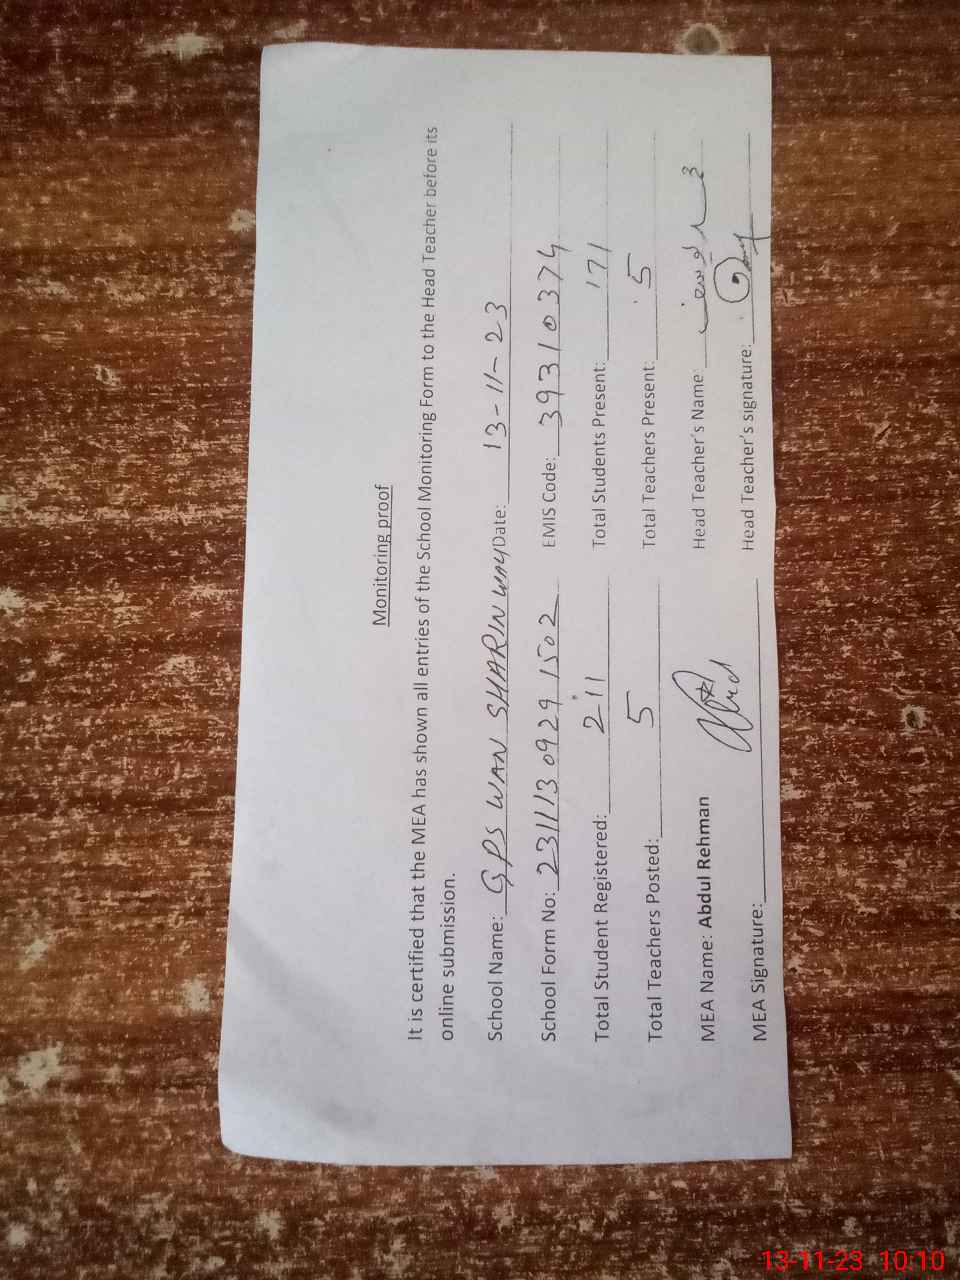 Monitoring proof
It is certified that the MEA has shown all entries of the School Monitoring Form to the Head Teacher before its
online submission.
School Name: GPS WAN SHARIN WAY Date: 13-11-23
School Form No: 231113 0929 1502 EMIS Code: 39310374
Total Student Registered: 211 Total Students Present: 171
Total Teachers Posted: 5 Total Teachers Present: 5
MEA Name: Abdul Rehman Head Teacher's Name:
MEA Signature: Head Teacher's signature:
13-11-23 10:10